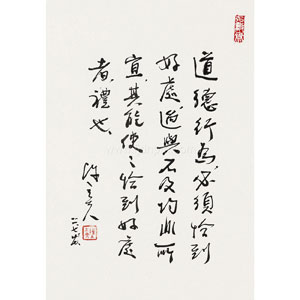 道德行為必須恰到
好處過與不及均非所
宜其能使之恰到好處
者禮也
陳立夫